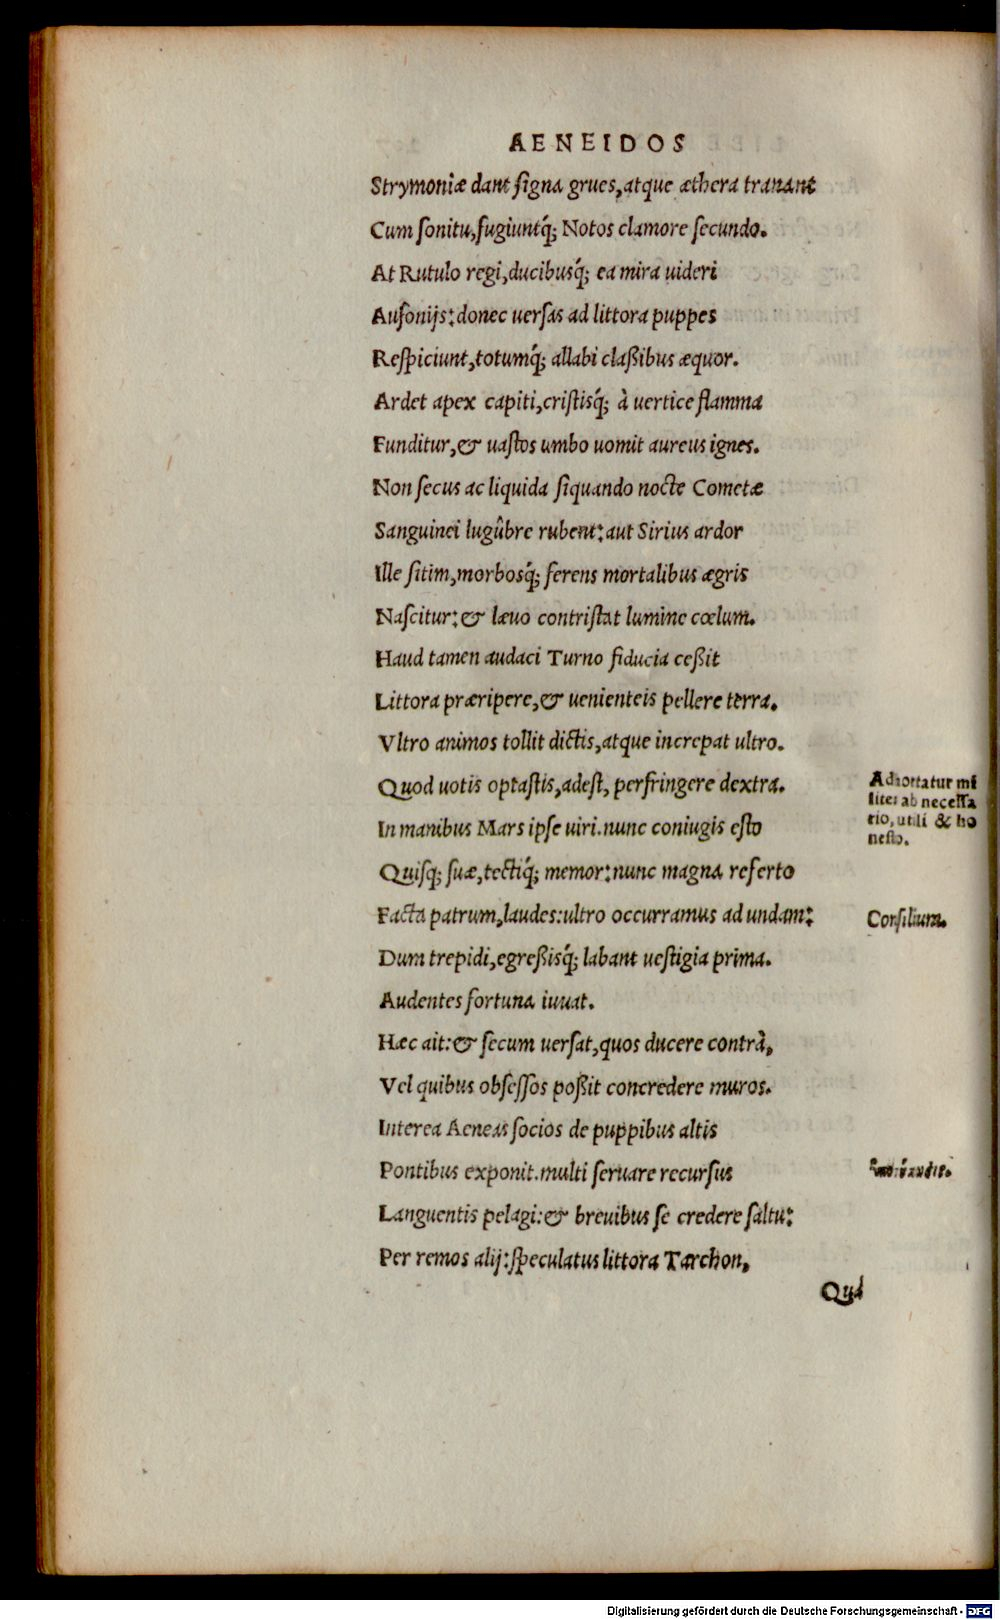 AENEIDOS
Strymoniæ dant signa grues, atque æthera tranant
Cum sonitu, fugiuntq́; Notos clamore secundo.
At Rutulo regi, ducibusq́; ea mira uideri
Ausonijs: donec uersas ad littora puppes
Respiciunt, totumq́; allabi claßibus æquor.
Ardet apex capiti, cristisq́; à uertice flamma
Funditur, & uastos umbo uomit aureus ignes.
Non secus ac liquida siquando nocte Cometæ
Sanguinei lugûbre rubent: aut Sirius ardor
Ille sitim, morbosq́; ferens mortalibus ægris
Nascitur: & læuo contristat lumine cœlum.
Haud tamen audaci Turno fiducia ceßit
Littora præripere, & uenienteis pellere terra.
Vltro animos tollit dictis, atque increpat ultro.
Quod uotis optastis, adest, perfringere dextra.
Adhortatur mi
lites ab necessa
rio, utili & ho
nesto.
In manibus Mars ipse uiri. nunc coniugis esto
Quisq; suæ, tectiq́; memor: nunc magna referto
Facta patrum, laudes: ultro occurramus ad undam:
Consilium.
Dum trepidi, egreßisq́; labant uestigia prima.
Audentes fortuna iuuat.
Hæc ait: & secum uersat, quos ducere contrà,
Vel quibus obsessos poßit concredere muros.
Interea Aeneas socios de puppibus altis
Pontibus exponit. multi seruare recursus
Languentis pelagi: & breuibus se credere saltu:
Per remos alij: speculatus littora Tarchon,
Quà
Digitalisierung gefördert durch die Deutsche Forschungsgemeinschaft - DFG